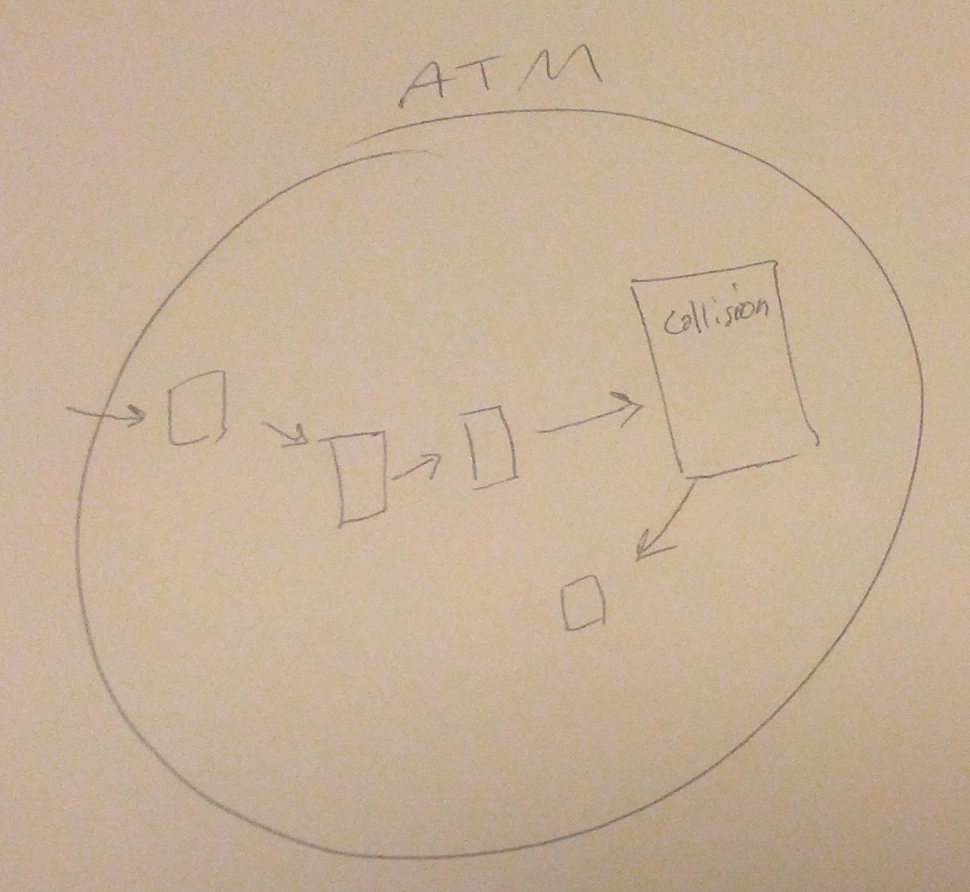 ATM
Collision